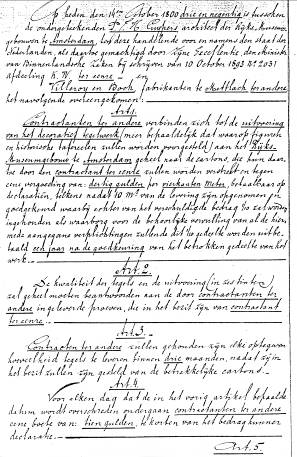 Op heden den 14en October 1800 drie en negentig is tusschen
de ondergeteekenden Dr. P. Cuypers architect der Rijks-Museum-
gebouwen te Amsterdam, tot deze handelende voor en namens den staat der
Nederlanden, als daartoe gemachtigd door Zijne Excellentie, den Minister
van Binnenlandsche Zaken bij schrijven van 10 October 1893 No 2031
afdeeling K.W. ter eenre en
Villeroy en Boch, fabrikanten te Mettlach ter andere
het navolgende overeengekomen:
Art. 1.
Contractanten ter andere verbinden zich tot de uitvoering
van het decoratief tegelwerk (meer bepaaldelijk dat waarop figuren
en historische tafereelen zullen worden voorgesteld) aan het Rijks-
Museumgebouw te Amsterdam geheel naar de cartons, die hun daar-
toe door den contractant ter eenre zullen worden verstrekt en tegen
eene vergoeding van: dertig gulden per vierkanten Meter, betaalbaar op
declaratie, telkens nadat 10 M² van de levering zijn opgenomen en
goedgekeurd waarbij echter van het verschuldigde bedrag 1/10 zal worden
ingehouden als waarborg voor de behoorlijke vervulling van al de hier-
mede aangegane verplichtingen zullende dit 1/10 gedeelte worden uitbe-
taald een jaar na de goedkeuring van het betrokken gedeelte van het
werk.
Art. 2.
De kwaliteit der tegels en de uitvoering
zal geheel moeten beantwoorden aan de door contractanten ter
andere ingeleverde proeven, die in het bezit zijn van contractant
ter eenre.
Art. 3.
Contracten ter andere zullen gehouden zijn elke opgegeven
hoeveelheid tegels te leveren binnen drie maanden, nadat zij in
het bezit zullen zijn gesteld van de betrekkelijke cartons.
Art. 4.
Voor elken dag dat de in het vorig artikel bepaalde
datum wordt overschreden ondergaan contractanten ter andere
eene boete van: tien gulden, te korten van het bedrag hunner
declaratie.
Art. 5.